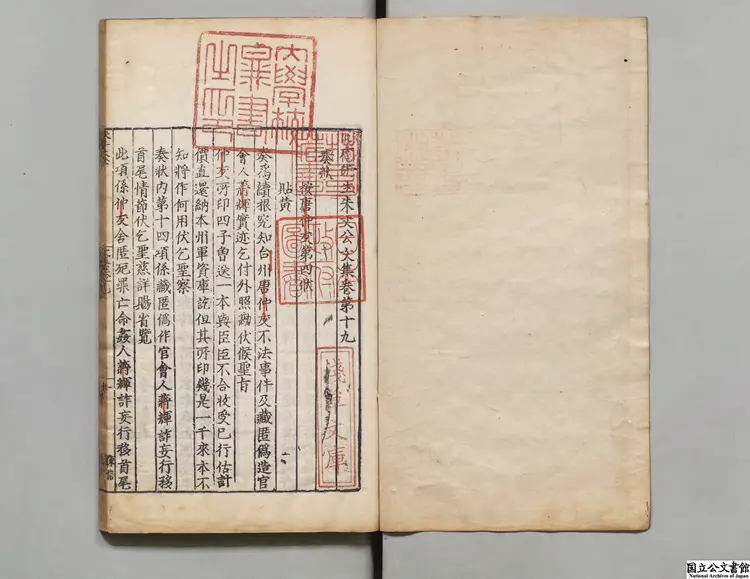 晦庵先生朱文公文集卷第十九
奏狀
按唐仲友第四狀
貼黃
奏爲續根究知台州唐仲友不法事件及藏匿僞造官
會人蔣輝實迹乞付外照勘伏候聖旨
仲友所印四子曽送一本與臣臣不合收受已行估計
價直還納本州軍資庫訖但其所印幾是一千來本不
知將作何用伏乞聖察
奏狀内第十四項係藏匿僞作官會人蔣輝詐妄行移
首尾情節伏乞聖慈詳賜省覽
此項係仲友舍匿死罪亡命姦人蔣輝詐妄行移首尾
淺草文庫
國立公文書館
National Archives of Japan